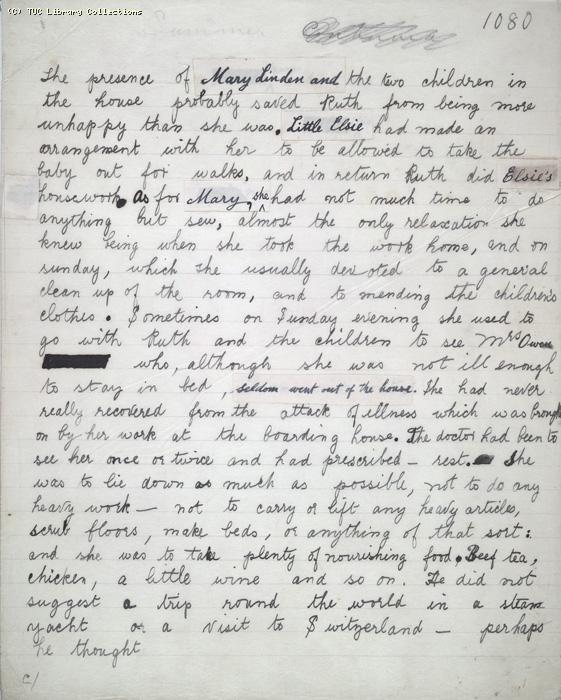 (C) TUC Library Collections
1080
The presence of Mary Linden and the two children in
the house probably saved Ruth from being more
unhappy than she was. Little Elsie had made an
arrangement with her to be allowed to take the
baby out for walks, and in return Ruth did Elsie's
housework. As for Mary, she had not much time to do
anything but sew, almost the only relaxation she
knew being when she took the work home, and on
sunday, which she usually devoted to a general
clean up of the room, and to mending the children's
clothes. Sometimes on Sunday evening she used to
go with Ruth and the children to see Mrs Owen
who, although she was not ill enough
to stay in bed, seldom went out of the house. She had never
really recovered from the attack of illness which was brought
on by her work at the boarding house. The doctor had been to
see her once or twice and had prescribed — rest. She
was to lie down as much as possible, not to do any
heavy work — not to carry or lift any heavy articles,
scrub floors, make beds, or anything of that sort:
and she was to take plenty of nourishing food. Beef tea,
chicken, a little wine and so on. He did not
suggest a trip round the world in a steam
yacht or a visit to Switzerland — perhaps
he thought
c/